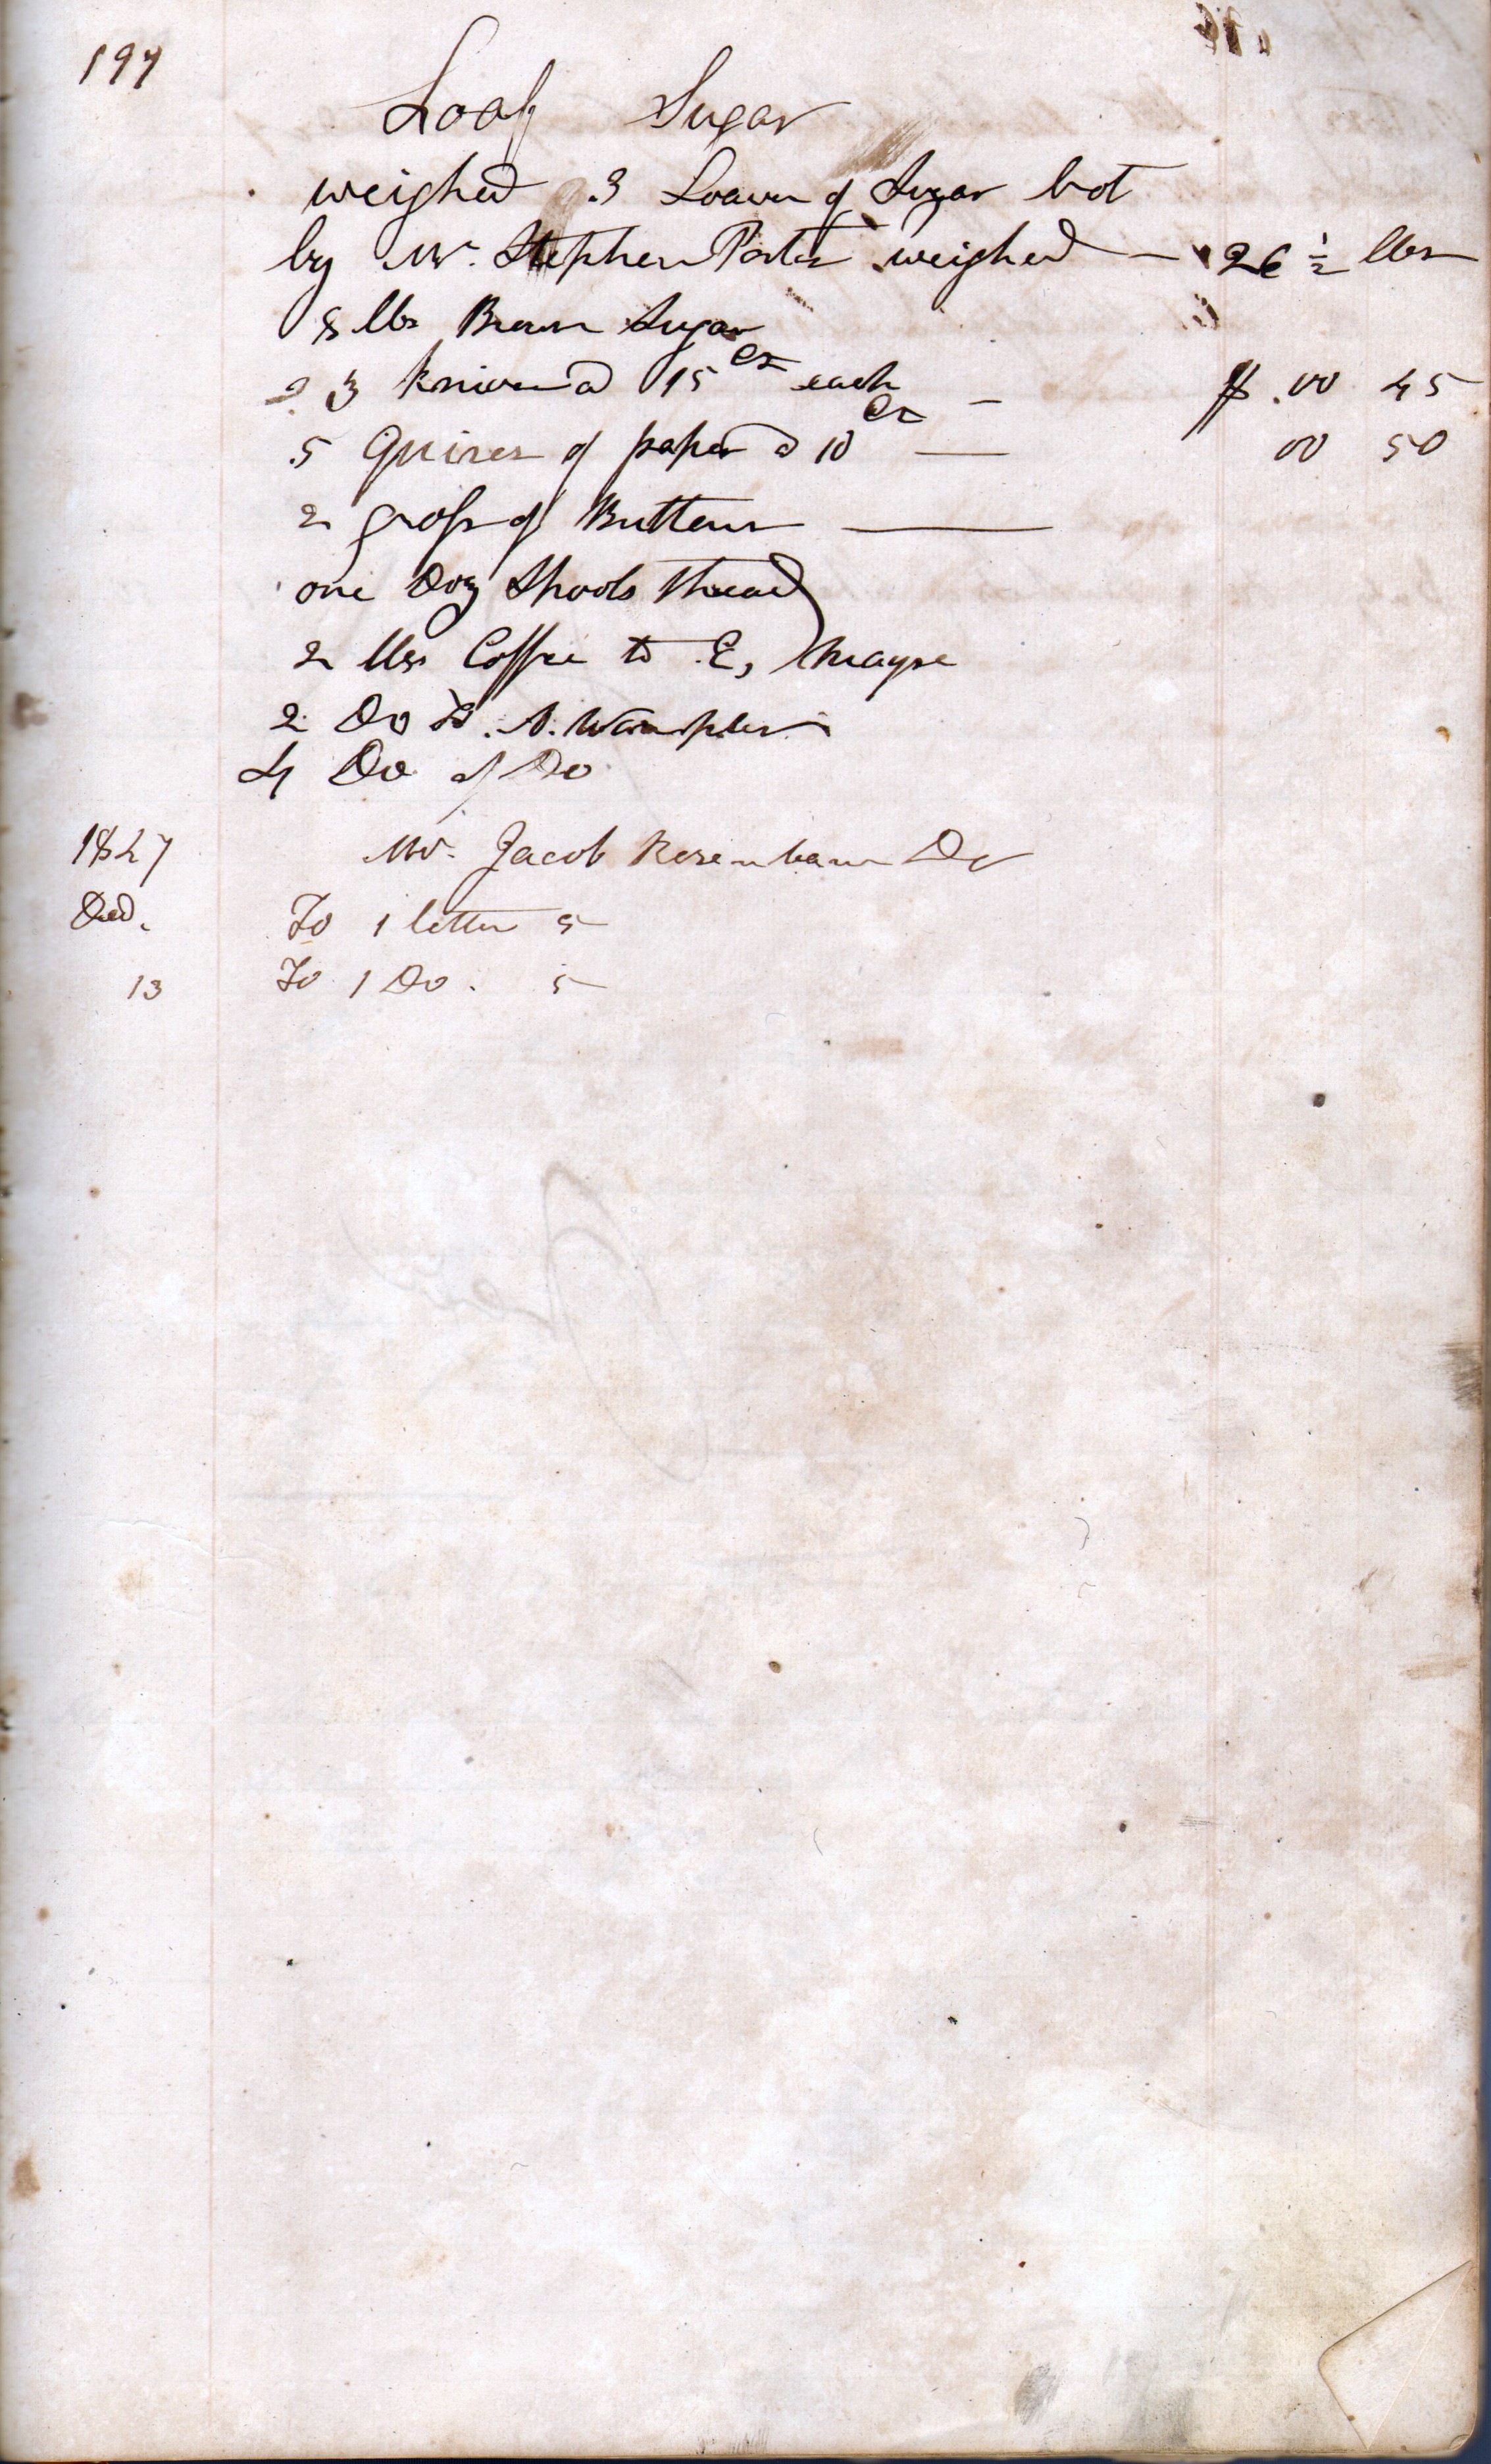 197
Loaf Sugar
weighed 3 Loaves of Sugar bot
by Mr. Stephen Porter weighed — 26 1/2 lbs
8 lbs Brown Sugar
3 knives @ 15 cts each — $ .00 45
5 Quires of paper @ 10 cts — 00 50
2 gross of Buttons —
one Doz Spools thread
2 lbs Coffee to E,
2 Do to A. Wampler
4 Do of Do
Mr. Jacob Rosenbaum Dr
To 1 letter 5
13 To 1 Do. 5